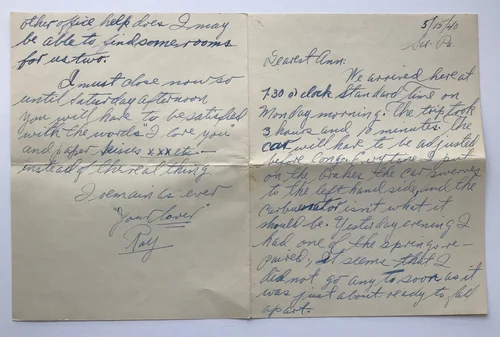 5/15/40
Scr. Pa.
Dearest Ann:
We arrived here at
7.30 o'clock standard time on
Monday morning. The trip took
3 hours and 10 minutes. The
car will have to be adjusted
before long. Every time I put
on the brakes the car swerves
to the left hand side, and the
carburator isn't what it
should be. Yesterday evening I
had one of the springs re-
paired, it seems that I
did not go any to soon as it
was just about ready to fall
apart.
other office help does I may
be able to find some rooms
for us two.
I must close now so
until Saturday afternoon
you will have to be satisfied
with the words I love you
and paper kisses xxx
instead of the real thing.
I remain as ever
"your lover"
Ray